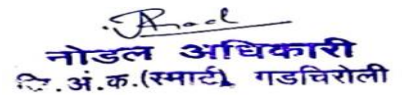 नोडल अधिकारी
जि.अं.क.(स्मार्ट) गडचिरोली